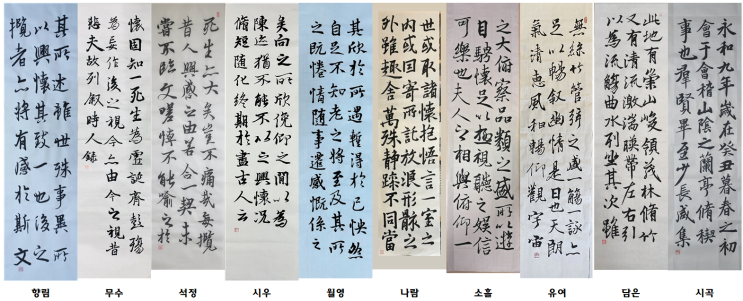 永和九年歲在癸丑暮春之初
會于會稽山陰之蘭亭脩禊
事也羣賢畢至少長咸集
此地有崇山峻領茂林脩竹
又有清流激湍暎帶左右引
以為流觴曲水列坐其次雖
無絲竹管絃之盛一觴一詠亦
足以暢叙幽情是日也天朗
氣清惠風和暢仰觀宇宙
之大俯察品類之盛所以遊
目騁懷足以極視聽之娛信
可樂也夫人之相與俯仰一
世或取諸懷抱悟言一室之
内或因寄所託放浪形骸之
外雖趣舍萬殊静躁不同當
其欣於所遇暫得於己怏然
自足不知老之將至及其所
之既惓情隨事遷感慨係之
矣向之所欣俛仰之間以為
陳迹猶不能不以之興懷況
脩短隨化終期於盡古人云
死生亦大矣豈不痛哉每攬
昔人興感之由若合一契未
嘗不臨文嗟悼不能喻之於
懷固知一死生為虛誕齊彭殤
為妄作後之視今亦由今之視昔
悲夫故列叙時人錄
其所述雖世殊事異所
以興懷其致一也後之
攬者亦將有感於斯文
향림 무수 석정 시우 월영 나람 소홀 유여 담은 시곡